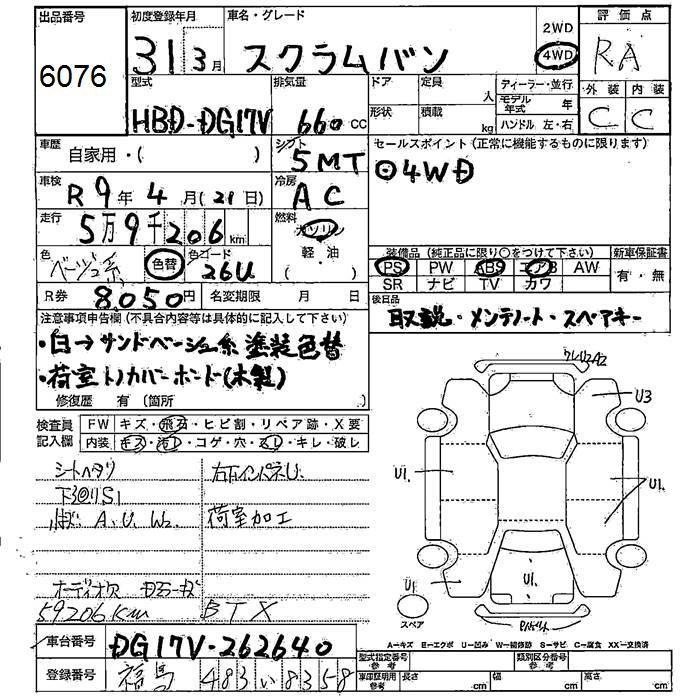 出品番号 初度登録年月 車名・グレード 2WD 評価点
6076 31 3月 スクラムバン 4WD RA
型式 排気量 ドア 定員 人 ディーラー・並行 外装 内装
HBD-DG17V 660cc 形状 積載 kg モデル年式 年 C C
ハンドル 左・右
車歴 自家用・( ) シフト 5MT セールスポイント (正常に機能するものに限ります)
車検 R9年4月(21日) 冷房 AC 4WD
走行 5万9千206km 燃料 ガソリン
色 ベージュ系 色替 色コード 26U 軽油 ( )
装備品 (純正品に限り○をつけて下さい) 新車保証書
PS PW ABS エアB AW 有・無
SR ナビ TV カワ
R券 8050円 名変期限 月 日
後日品
取説・メンテノート・スペアキー
注意事項申告欄 (不具合内容等は具体的に記入して下さい)
・白→サンドベージュ系塗装色替
・荷室トノカバーボード(木製)
修復歴 有 (箇所 )
検査員記入欄 FW キズ・飛石・ヒビ割・リペア跡・X要
内装 キズ・汚レ・コゲ・穴・スレ・キレ・破レ
シートヘタリ 右下インパネU.
下回りS1
A.U.W2. 荷室加工
オーディオ欠
59206km BTX
U3
U1.
U1.
U1.
U1
スペア
A=キズ E=エクボ U=凹み W=補修跡 S=サビ C=腐食 XX=交換済
車台番号 DG17V-262640
登録番号 福島 483 い 8358
型式指定番号 参考 類別区分番号 参考
車車証明用 参考 長さ cm 幅 cm 高さ cm